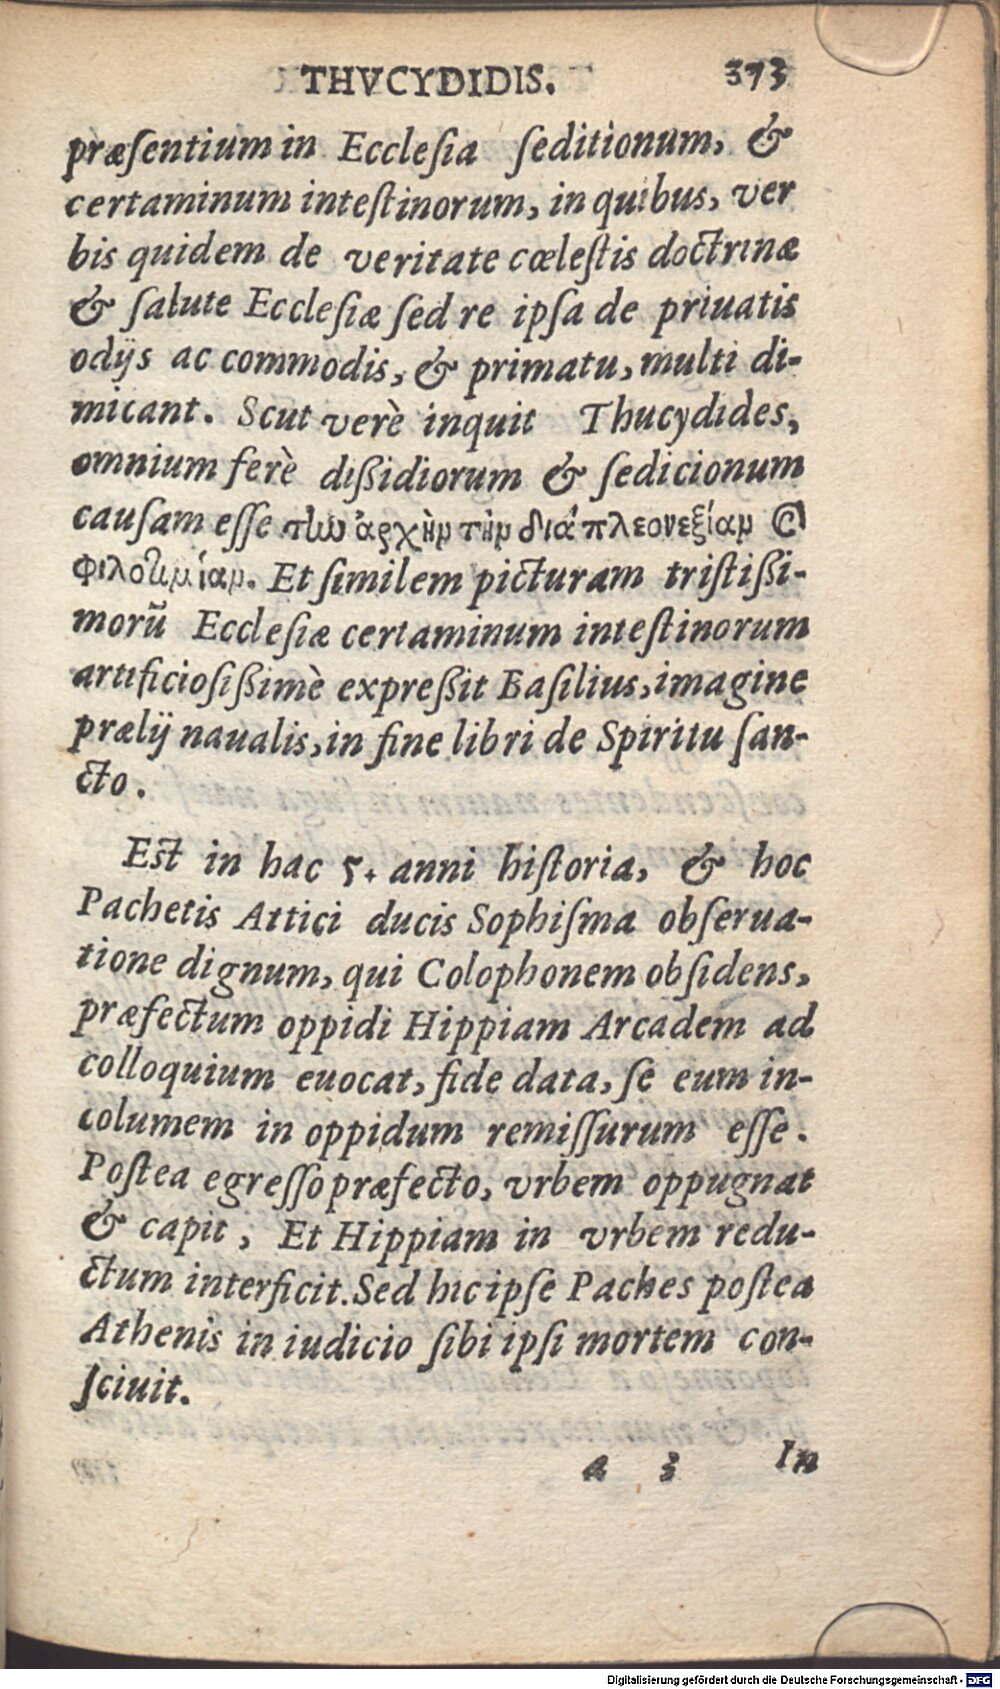 THVCYDIDIS. 373
præſentium in Eccleſia ſeditionum, &
certaminum inteſtinorum, in quibus, ver
bis quidem de veritate cœleſtis doctrinæ
& ſalute Eccleſiæ ſed re ipſa de priuatis
odijs ac commodis, & primatu, multi di-
micant. Scut verè inquit Thucydides,
omnium ferè dißidiorum & ſedicionum
cauſam eſſe τὼ ἀρχὴν τὴν διὰ πλεονεξίαν καὶ
φιλοτιμίαν. Et ſimilem picturam triſtißi-
morũ Eccleſiæ certaminum inteſtinorum
artificioſißimè expreßit Baſilius, imagine
prælij naualis, in fine libri de Spiritu ſan-
cto.
Eſt in hac 5. anni hiſtoria, & hoc
Pachetis Attici ducis Sophiſma obſerua-
tione dignum, qui Colophonem obſidens,
præfectum oppidi Hippiam Arcadem ad
colloquium euocat, fide data, ſe eum in-
columem in oppidum remiſſurum eſſe.
Poſtea egreſſo præfecto, vrbem oppugnat
& capit, Et Hippiam in vrbem redu-
ctum interficit. Sed hic ipſe Paches poſtea
Athenis in iudicio ſibi ipſi mortem con-
ſciuit.
a 3 In
Digitalisierung gefördert durch die Deutsche Forschungsgemeinschaft - DFG